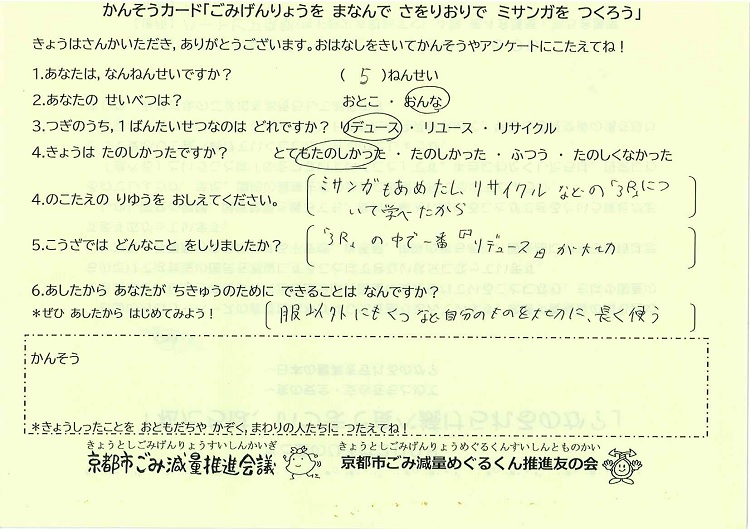 かんそうカード「ごみげんりょうを まなんで さをりおりで ミサンガを つくろう」
きょうはさんかいただき、ありがとうございます。おはなしをきいてかんそうやアンケートにこたえてね！
1.あなたは、なんねんせいですか？ （ 5 ）ねんせい
2.あなたの せいべつは？ おとこ ・ おんな
3.つぎのうち、１ばんたいせつなのは どれですか？ リデュース ・ リユース ・ リサイクル
4.きょうは たのしかったですか？ とてもたのしかった ・ たのしかった ・ ふつう ・ たのしくなかった
4.のこたえの りゆうを おしえてください。
ミサンガもあめたし、リサイクル などの「3R」につ
いて学べたから
5.こうざでは どんなこと をしりましたか？
「3R」の中で一番『リデュース』が大切
6.あしたから あなたが ちきゅうのために できることは なんですか？
＊ぜひ あしたから はじめてみよう！
服以外にもくつなど自分のものを大切に、長く使う
かんそう
＊きょうしったことを おともだちや かぞく,まわりの人たちに つたえてね！
きょうとしごみげんりょうすいしんかいぎ
京都市ごみ減量推進会議
きょうとしごみげんりょうめぐるくんすいしんとものかい
京都市ごみ減量めぐるくん推進友の会